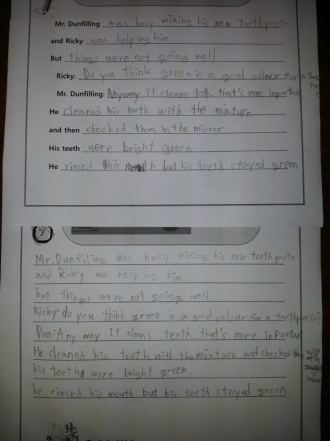 Mr. Dunfilling was busy mixing his new toothpaste
and Ricky was helping him
But things were not going well
Ricky: Do you think green is a good colour for a
Mr. Dunfilling: Anyway it cleans teeth, that's more important
He cleaned his tooth with the mixture
and then checked them in the mirror
His teeth were bright green
He rinsed his mouth but his teeth stayed green
Mr. Dunfilling was busy mixing his new tooth paste
and Ricky was helping him.
but things were not going well.
Ricky: do you think green is a good colour for a toothpaste?
Dun: Any way It cleans teeth that's more important
He cleaned his tooth with the mixture and checked them
his teeth were bright green.
he rinsed his mouth but his teeth stayed green